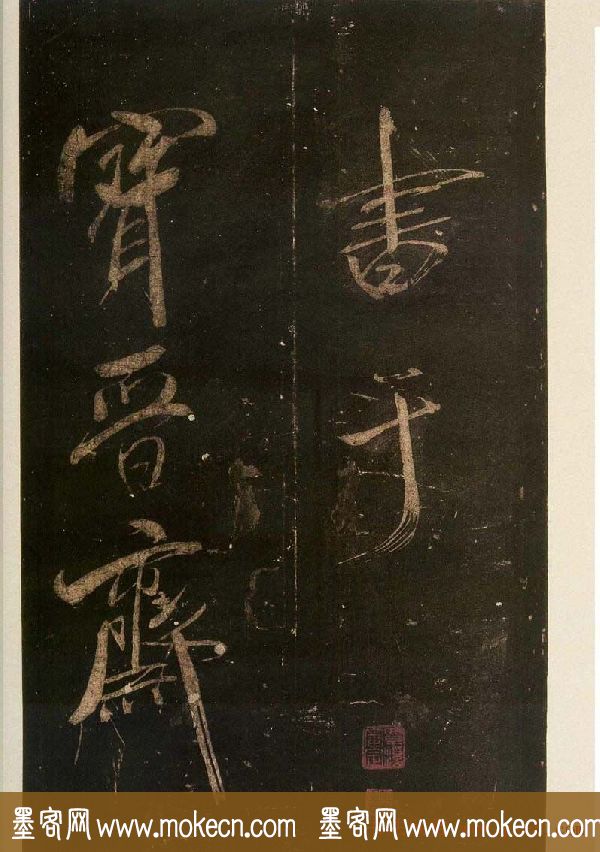 書于
寳晉齋
墨客网 www.mokecn.com 墨客网 www.mokecn.com